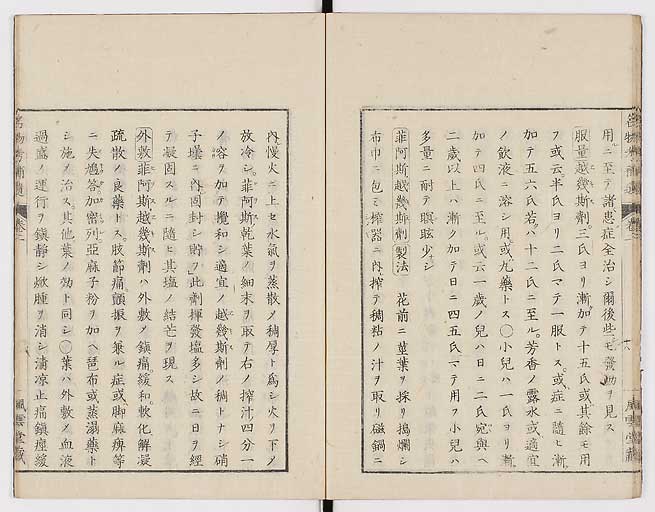 用ニ至テ諸患症全治シ爾後些モ發動ヲ見ス
服量越幾斯劑。三氏ヨリ漸加テ十五氏或其餘モ用
フ或云。半氏ヨリ二氏マテ一服トス。或症ニ隨ヒ漸
加テ五六氏若ハ十二氏ニ至ル。芳香ノ露水或適宜
ノ飲液ニ溶シ用或丸藥トス〇小兒ハ一氏ヨリ漸
加テ四氏ニ至ル。或云一歲ノ兒ハ日ニ二氏宛與ヘ
二歲以上ハ漸ク加テ日ニ四五氏マテ用フ小兒ハ
多量ニ耐テ瞑眩少シ
菲阿斯越幾斯劑製法　花前ニ莖葉ヲ採リ搗爛シ
布巾ニ包ミ搾器ニ内搾テ稠粘ノ汁ヲ取リ磁鍋ニ
内慢火ニ上セ水氣ヲ蒸散メ稠厚ト爲シ火ヲ下メ
放冷シ。菲阿斯乾葉ノ細末ヲ取テ右ノ搾汁四分一
ノ溶ヲ加テ攪和シ適宜ノ越幾斯劑ノ稠トナシ硝
子壜ニ内固封シ貯フ此劑揮發塩多シ故ニ日ヲ經
テ凝固スルニ隨ヒ其塩ノ結芒ヲ現ス
外敷菲阿斯越幾斯劑ハ外敷メ鎮痛緩和。軟化解凝
疏散ノ良藥トス。肢節痛。顫振ヲ兼ル症或脚麻痺等
ニ失鳩答加密列。亞麻子粉ヲ加ヘ琶布或蒸溻藥ト
シ施ノ治ス。其他葉ノ効ト同シ〇葉ハ外敷メ血液
過盛ノ運行ヲ鎮靜シ焮腫ヲ消シ淸凉止痛鎮痙緩
名物考補遺
卷二
風雲堂藏